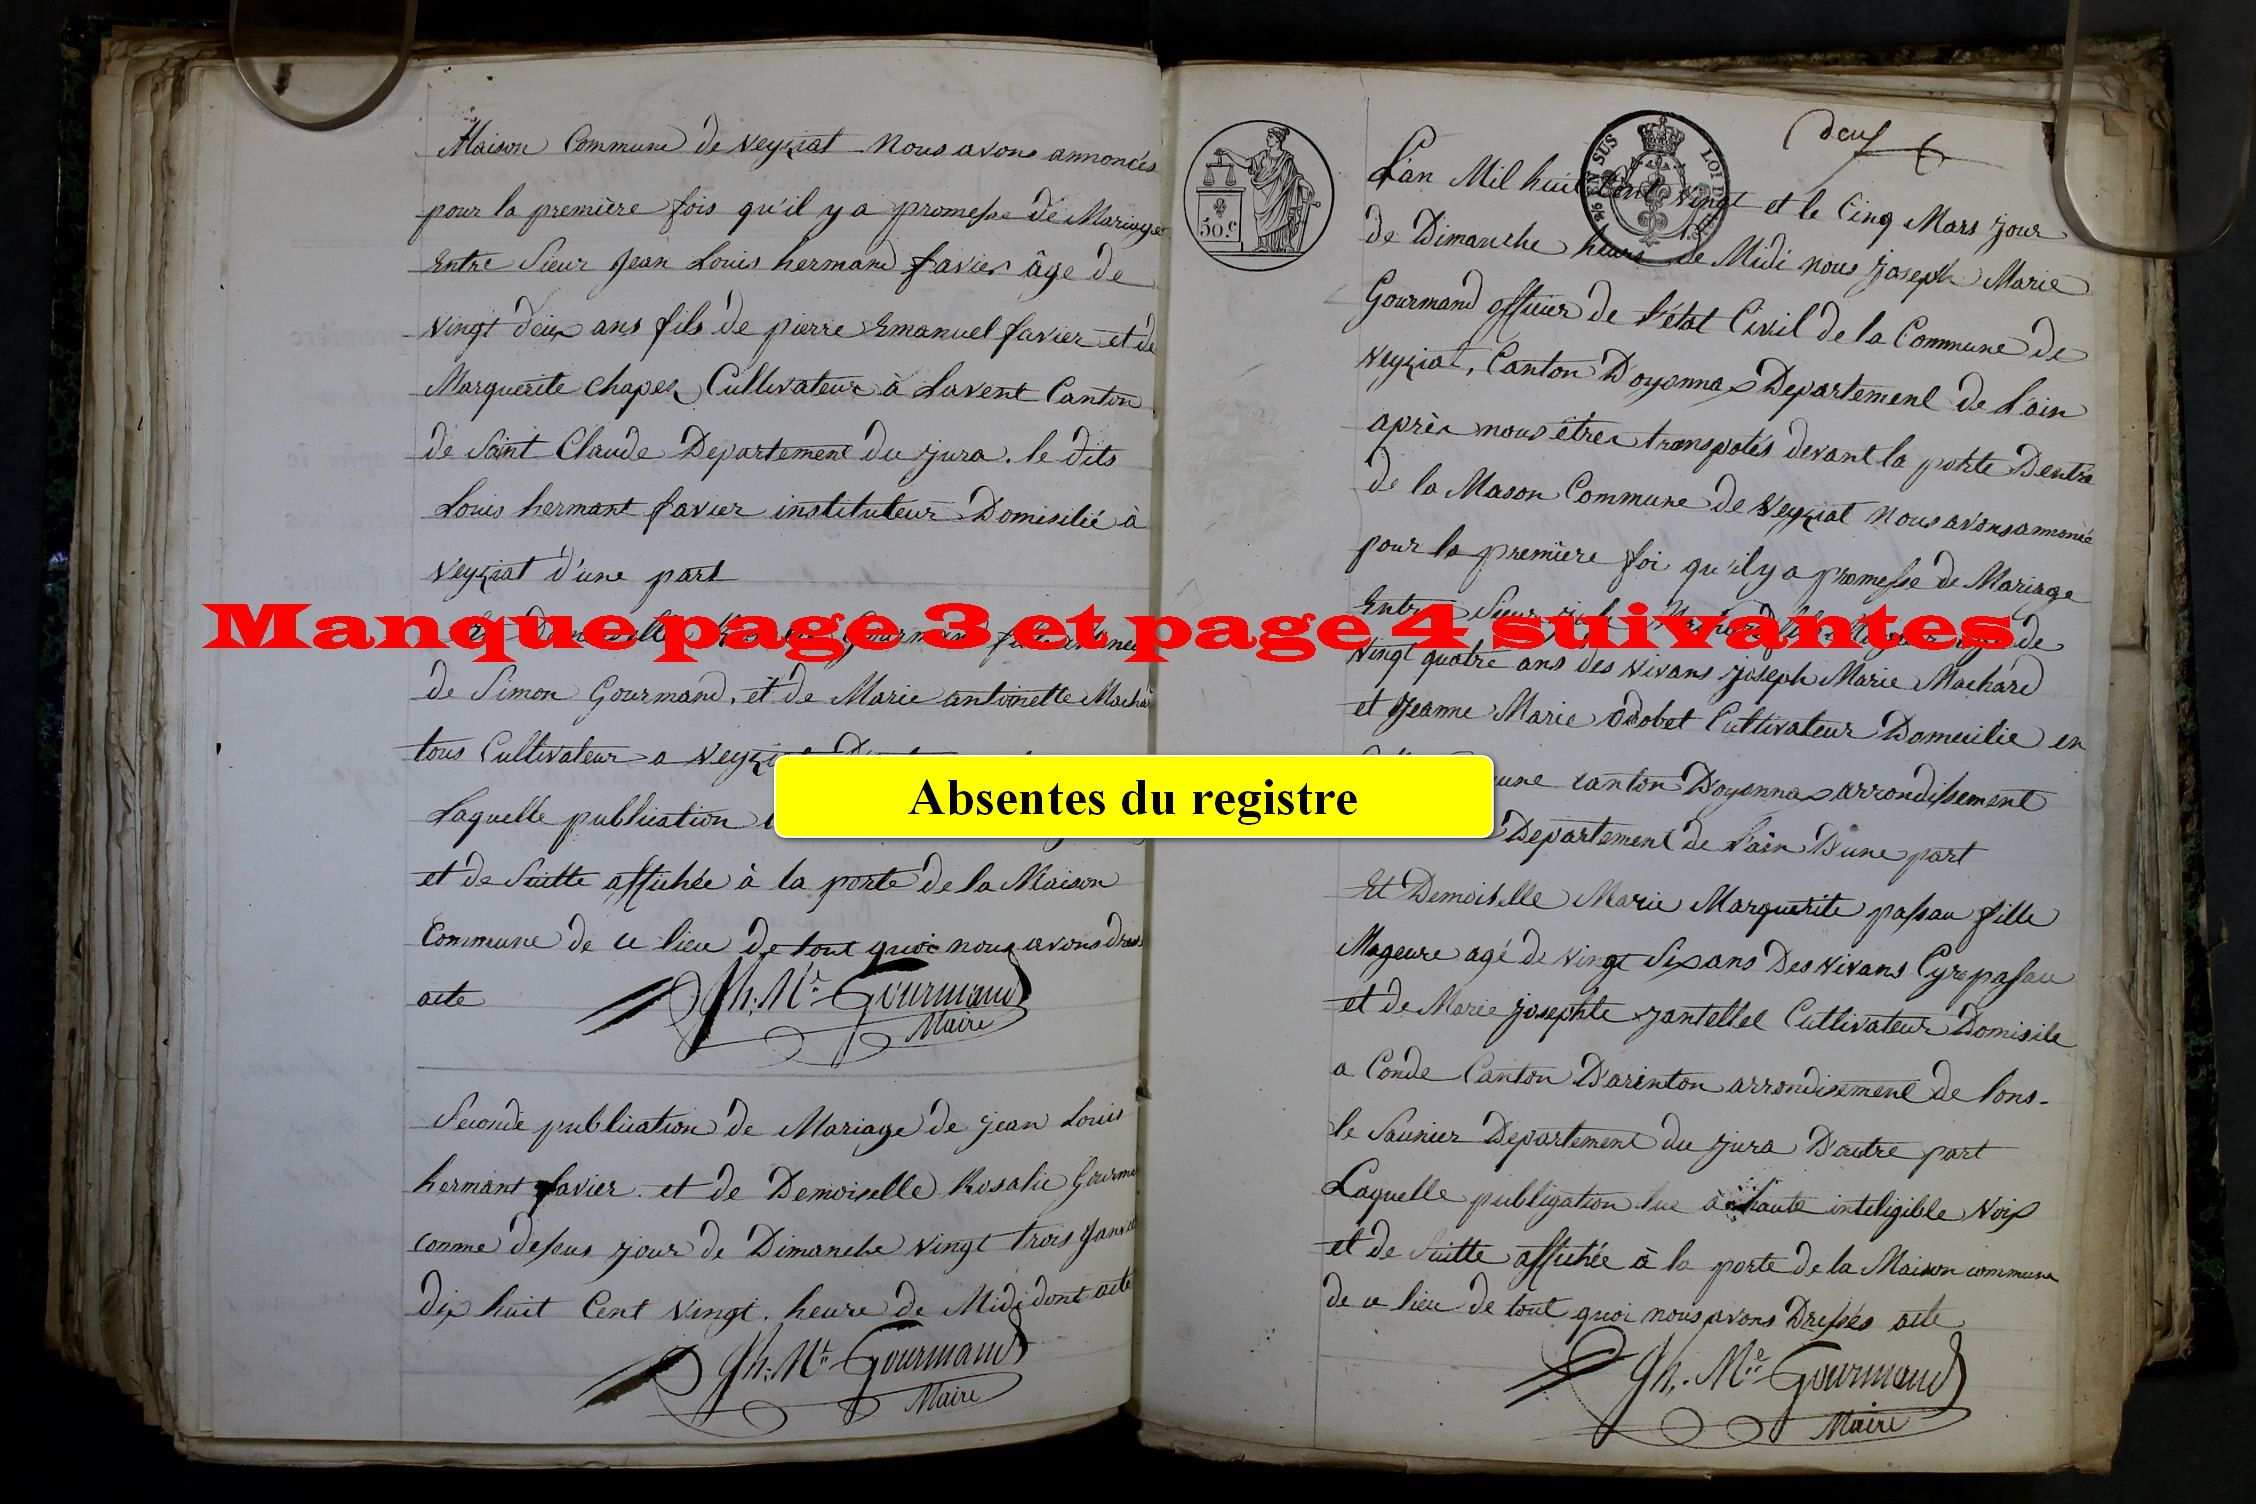 Maison Commune de Veyziat Nous avons annoncés
pour la première fois qu'il y a promesse de Mariage
Entre Sieur Jean Louis hermand favier âge de
vingt deux ans fils de pierre Emanuel favier et de
Marguerite chapez Cultivateur à Lavent Canton
de Saint Claude Departement du jura. le dits
Louis hermant favier instituteur Domisilié à
Veyziat d'une part
Demoiselle Gourmand
de Simon Gourmand, et de Marie antoinette Machar
tous Cultivateur a Veyziat
Laquelle publication
et de Suitte affichée à la porte de la Maison
Commune de ce lieu de tout quoi nous avons dress
acte
Jh. Mie Gourmand
Maire
Seconde publication de Mariage de jean Louis
hermant favier et de Demoiselle Rosalie Gourma
comme dessus jour de Dimanche vingt trois Janvie
dix huit Cent vingt. heure de Midi dont acte
Jh. Mie Gourmand
Maire
deux
50.c
EN SUS
LOI D
L'an Mil huit Cent vingt et le Cinq Mars jour
de Dimanche heure de Midi nous joseph Marie
Gourmand officier de l'état Civil de la Commune de
Veyziat, Canton D'oyonnax Departement de L'ain
après nous êtres transpotés devant la porte Dentré
de la Mason Commune de Veyziat Nous avons annoncé
pour la première foi qu'il y a promesse de Mariage
Entre Sieur Machard de
vingt quatre ans des vivans joseph Marie Machard
et Jeanne Marie odobet Cultivateur Domicilié en
une canton D'oyonnax arrondissement
Departement de L'ain D'une part
Et Demoiselle Marie Marguerite passau fille
Mageure agé de vingt Six ans Des vivans Cyr passau
et de Marie josephte jantellet Cultivateur Domisile
a Conde Canton D'arinton arrondisement de lons-
le Saunier Departement du jura D'autre part
Laquelle publigation lue à haute inteligible voix
et de Suitte affichée à la porte de la Maison commune
de ce lieu de tout quoi nous avons Dressés acte
Jh. Mie Gourmand
Maire
Manque page 3 et page 4 suivantes
Absentes du registre